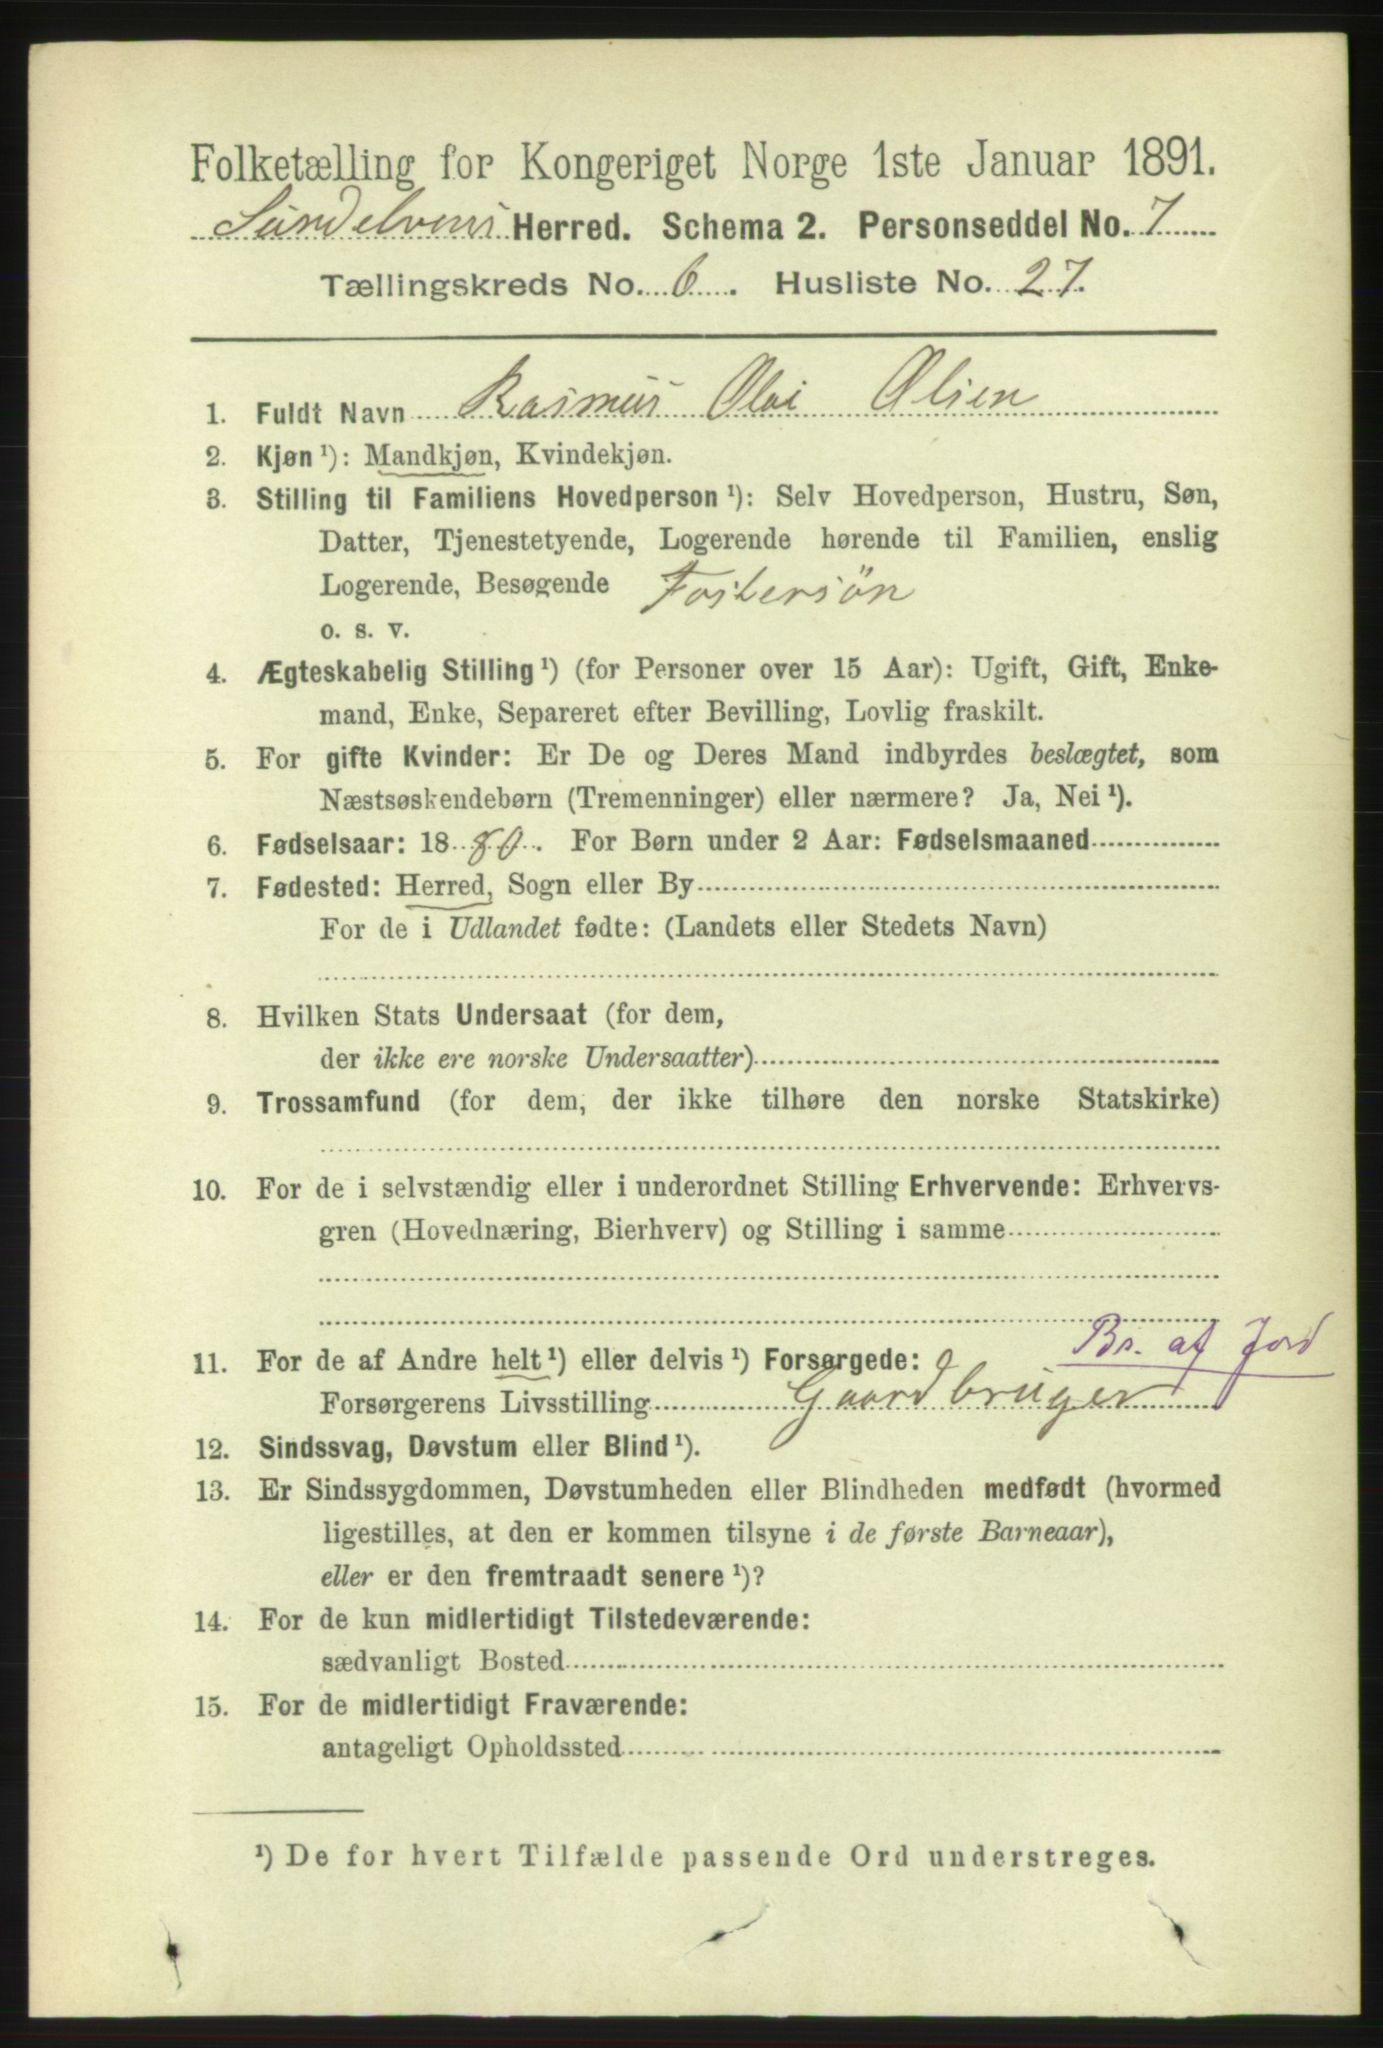 Folketælling for Kongeriget Norge 1ste Januar 1891.
Søndelevens Herred. Schema 2. Personseddel No. 7
Tællingskreds No. 6. Husliste No. 27.
1. Fuldt Navn Rasmus Olai Olsen
2. Kjøn ¹): Mandkjøn, Kvindekjøn.
3. Stilling til Familiens Hovedperson ¹): Selv Hovedperson, Hustru, Søn,
Datter, Tjenestetyende, Logerende hørende til Familien, enslig
Logerende, Besøgende Fostersön
o. s. v.
4. Ægteskabelig Stilling ¹) (for Personer over 15 Aar): Ugift, Gift, Enke-
mand, Enke, Separeret efter Bevilling, Lovlig fraskilt.
5. For gifte Kvinder: Er De og Deres Mand indbyrdes beslægtet, som
Næstsøskendebørn (Tremenninger) eller nærmere? Ja, Nei ¹).
6. Fødselsaar: 1880. For Børn under 2 Aar: Fødselsmaaned
7. Fødested: Herred, Sogn eller By
For de i Udlandet fødte: (Landets eller Stedets Navn)
8. Hvilken Stats Undersaat (for dem,
der ikke ere norske Undersaatter)
9. Trossamfund (for dem, der ikke tilhøre den norske Statskirke)
10. For de i selvstændig eller i underordnet Stilling Erhvervende: Erhvervs-
gren (Hovednæring, Bierhverv) og Stilling i samme
Br. af Jord
11. For de af Andre helt ¹) eller delvis ¹) Forsørgede:
Forsørgerens Livsstilling Gaardbruger
12. Sindssvag, Døvstum eller Blind ¹).
13. Er Sindssygdommen, Døvstumheden eller Blindheden medfødt (hvormed
ligestilles, at den er kommen tilsyne i de første Barneaar),
eller er den fremtraadt senere ¹)?
14. For de kun midlertidigt Tilstedeværende:
sædvanligt Bosted
15. For de midlertidigt Fraværende:
antageligt Opholdssted
¹) De for hvert Tilfælde passende Ord understreges.